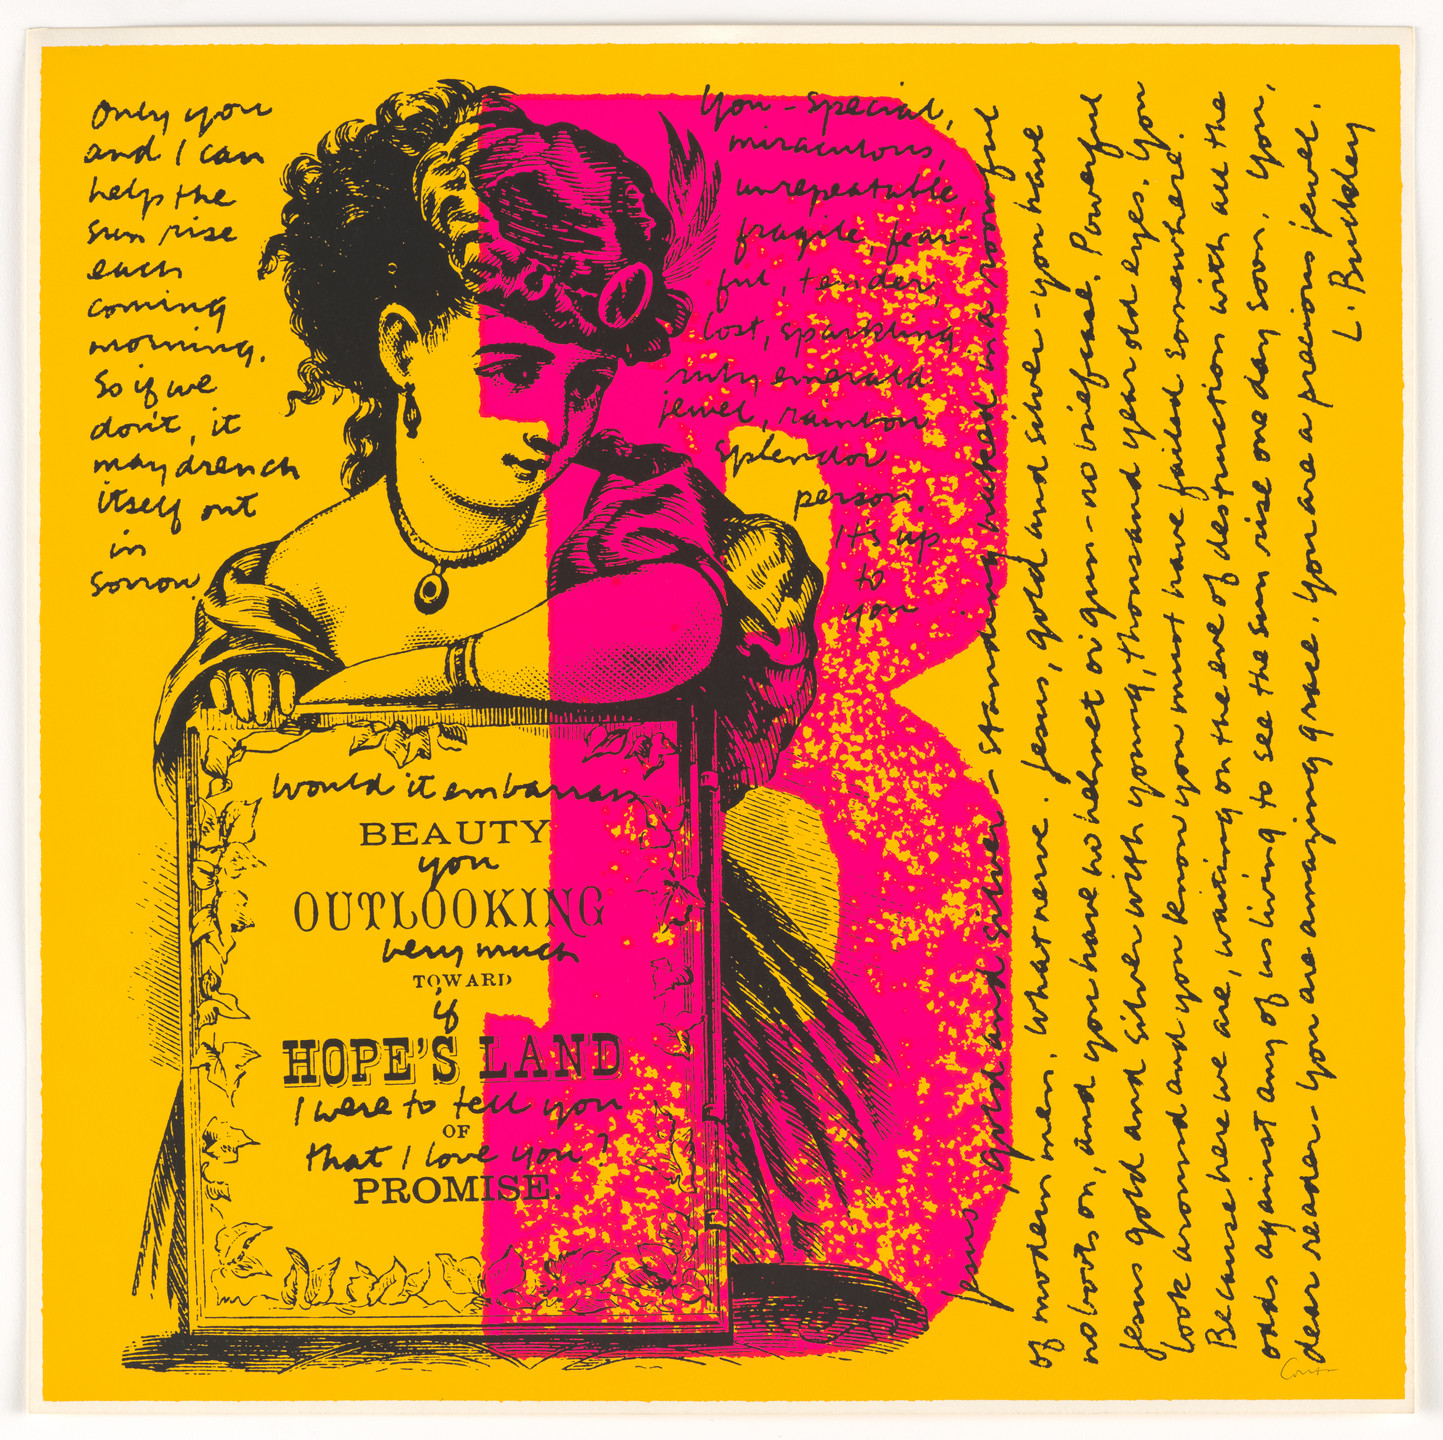 Only you
and I can
help the
sun rise
each
coming
morning.
So if we
don't, it
may drench
itself out
in
sorrow.
You - special,
miraculous,
unrepeatable,
fragile, fear-
ful, tender,
lost, sparkling
ruby emerald
jewel, rainbow
splendor
person.
It's up
to
you
would it embarrass
BEAUTY
you
OUTLOOKING
very much
TOWARD
if
HOPE'S LAND
I were to tell you
OF
that I love you?
PROMISE.
Jesus, gold and silver - standing naked in a roomful
of modern men. What nerve. Jesus, gold and silver - you have
no boots on, and you have no helmet or gun - no briefcase. Powerful
Jesus gold and silver with young, thousand year old eyes. You
look around and you know you must have failed somewhere.
Because here we are, waiting on the eve of destruction with all the
odds against any of us living to see the sun rise one day soon. You,
dear reader - you are amazing grace. You are a precious jewel.
L. Buckley